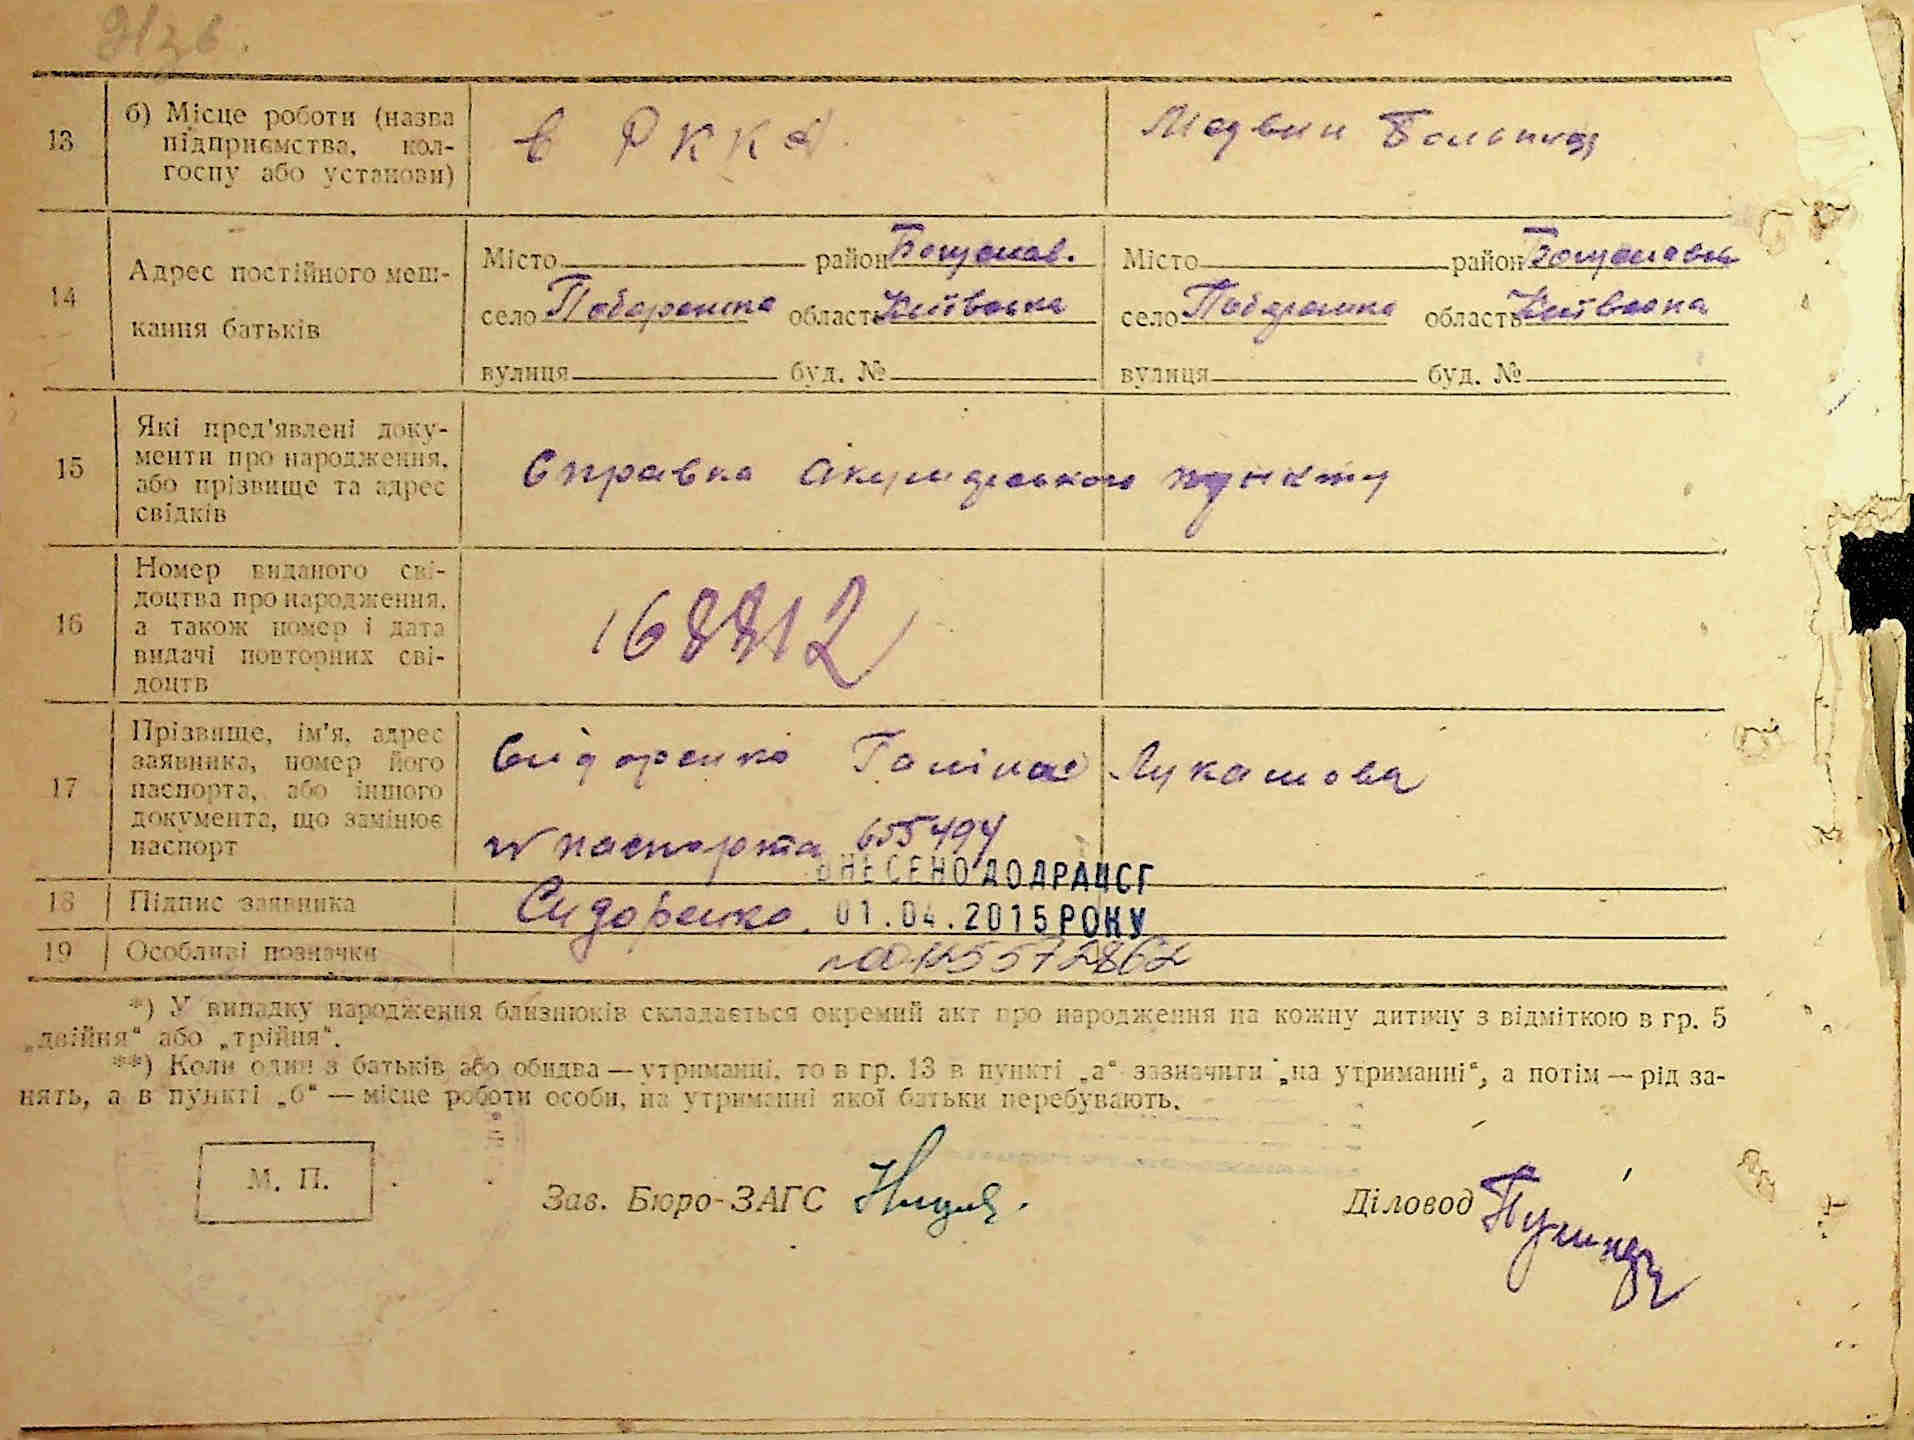 13 б) Місце роботи (назва підприємства, колгоспу або установи)
в РККА
Медвин Больница
14 Адрес постійного мешкання батьків
Місто район Богуслав.
село Побережка область Київська
вулиця буд. №
Місто район Богуславськ
село Побережка область Київська
вулиця буд. №
15 Які пред'явлені документи про народження, або прізвище та адрес свідків
Справка Акушерського пункту
16 Номер виданого свідоцтва про народження, а також номер і дата видачі повторних свідоцтв
168812
17 Прізвище, ім'я, адрес заявника, номер його паспорта, або іншого документа, що замінює паспорт
Сидоренко Галина Лукашова
№ паспорта 655494
ВНЕСЕНО ДО ДРАЦСГ
18 Підпис заявника
Сидоренко.
01.04.2015 РОКУ
19 Особливі позначки
*) У випадку народження близнюків складається окремий акт про народження на кожну дитину з відміткою в гр. 5
„двійня“ або „трійня“.
**) Коли один з батьків або обидва — утриманці, то в гр. 13 в пункті „а“ зазначити „на утриманні“, а потім — рід за-
нять, а в пункті „б“ — місце роботи особи, на утриманні якої батьки перебувають.
М. П.
Зав. Бюро-ЗАГС
Діловод